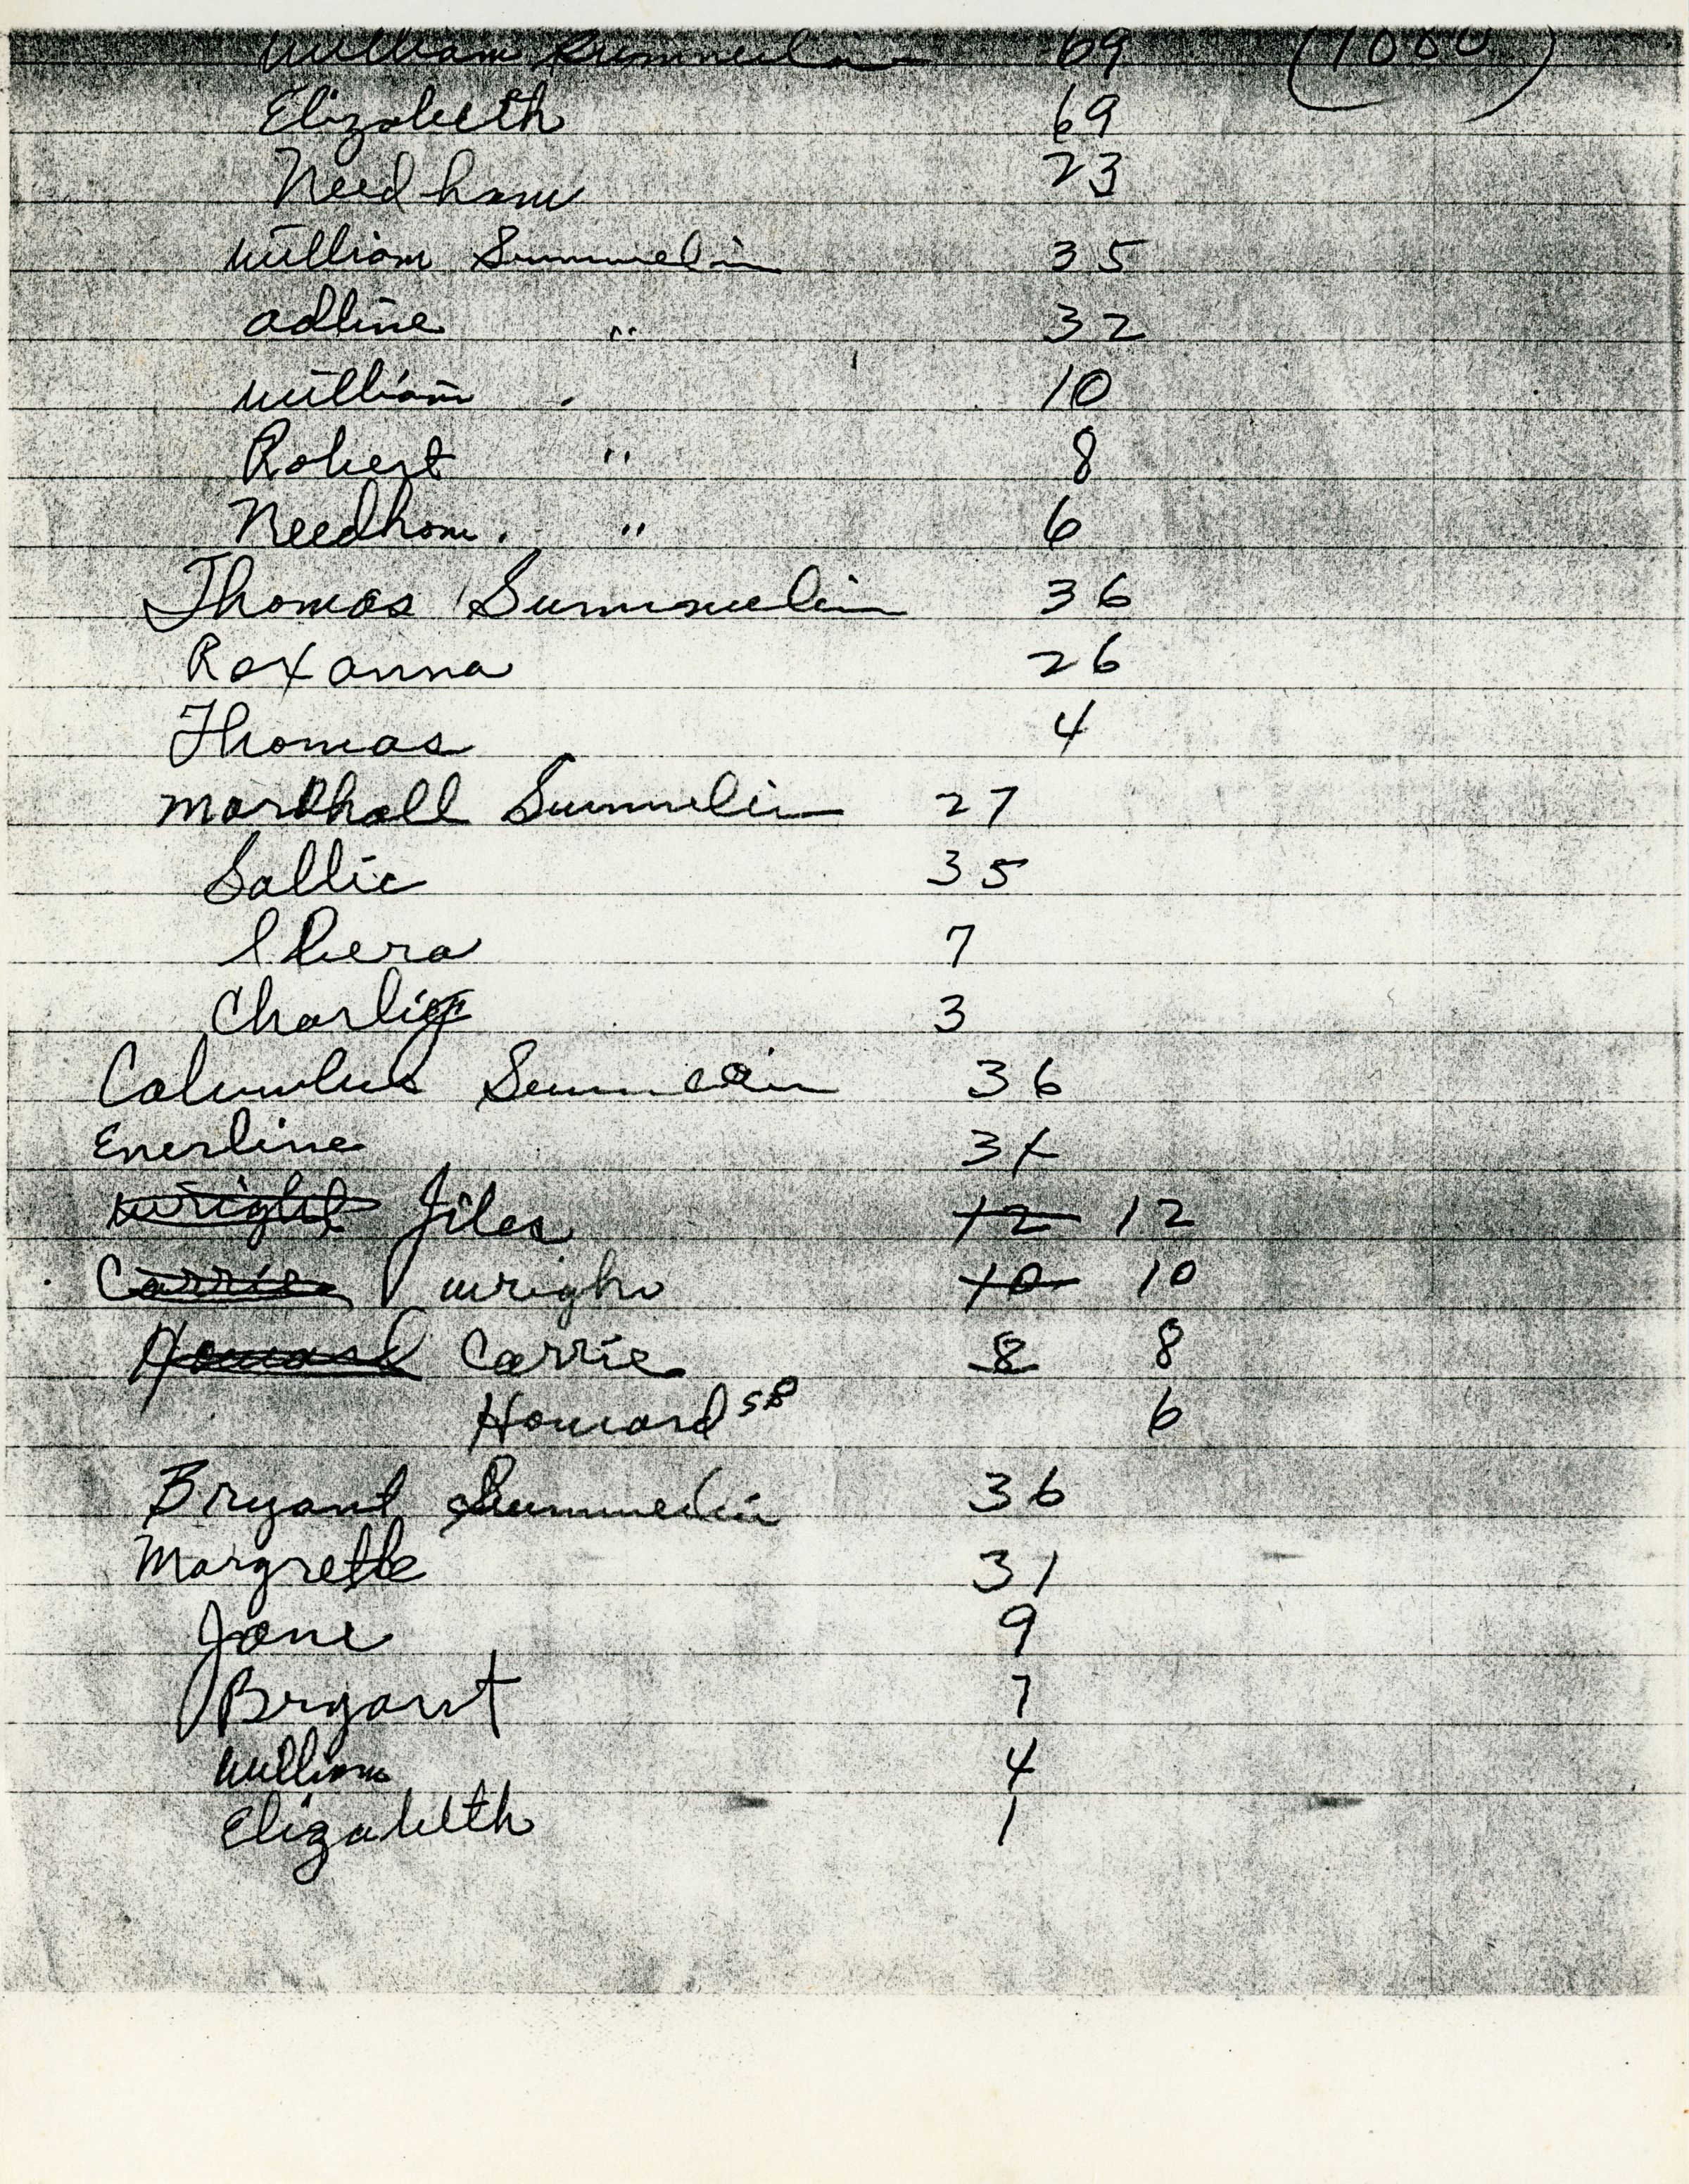 William Summelin 69
Elizabeth 69
Needham 23
William Summelin 35
adline " 32
William 10
Robert " 8
Needham. " 6
Thomas Summuelin 36
Roxanna 26
Thomas 4
Marshall Summelin 27
Sallie 35
7
Charlie 3
Columbus 36
Enerline 31
Wright Jiles 12 12
Carrie wrigh 10 10
Howard Carrie 8 8
Howard 6
Bryant Summelin 36
Margrette 31
Jane 9
Bryant 7
William 4
Elizabeth 1